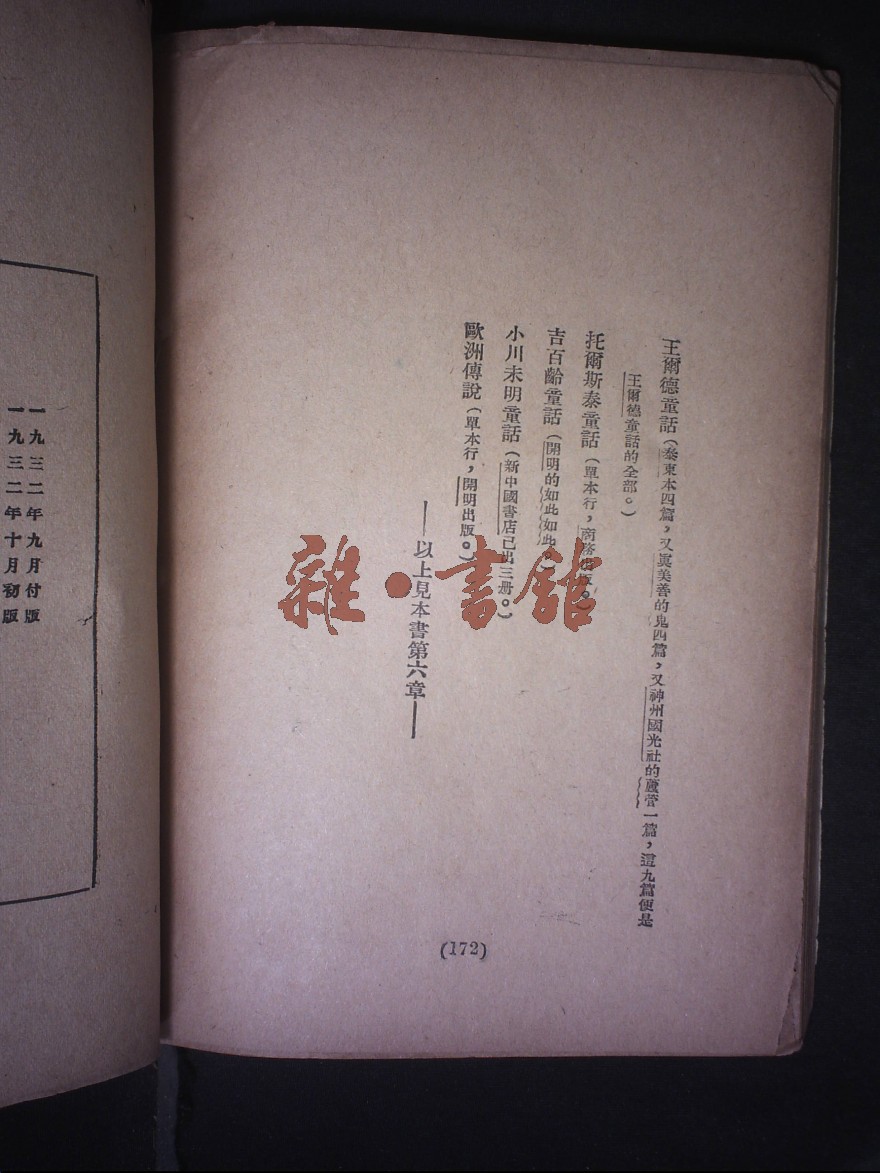 王爾德童話（泰東本四篇，又眞美善的鬼四篇，又神州國光社的蘆管一篇，這九篇便是
王爾德童話的全部。）
托爾斯泰童話（單本行，商務出版。）
吉百齡童話（開明的如此如此。）
小川未明童話（新中國書店已出三册。）
歐洲傳說（單本行，開明出版。）
——以上見本書第六章——
(172)
一九三二年九月付版
一九三二年十月初版
雜·書館